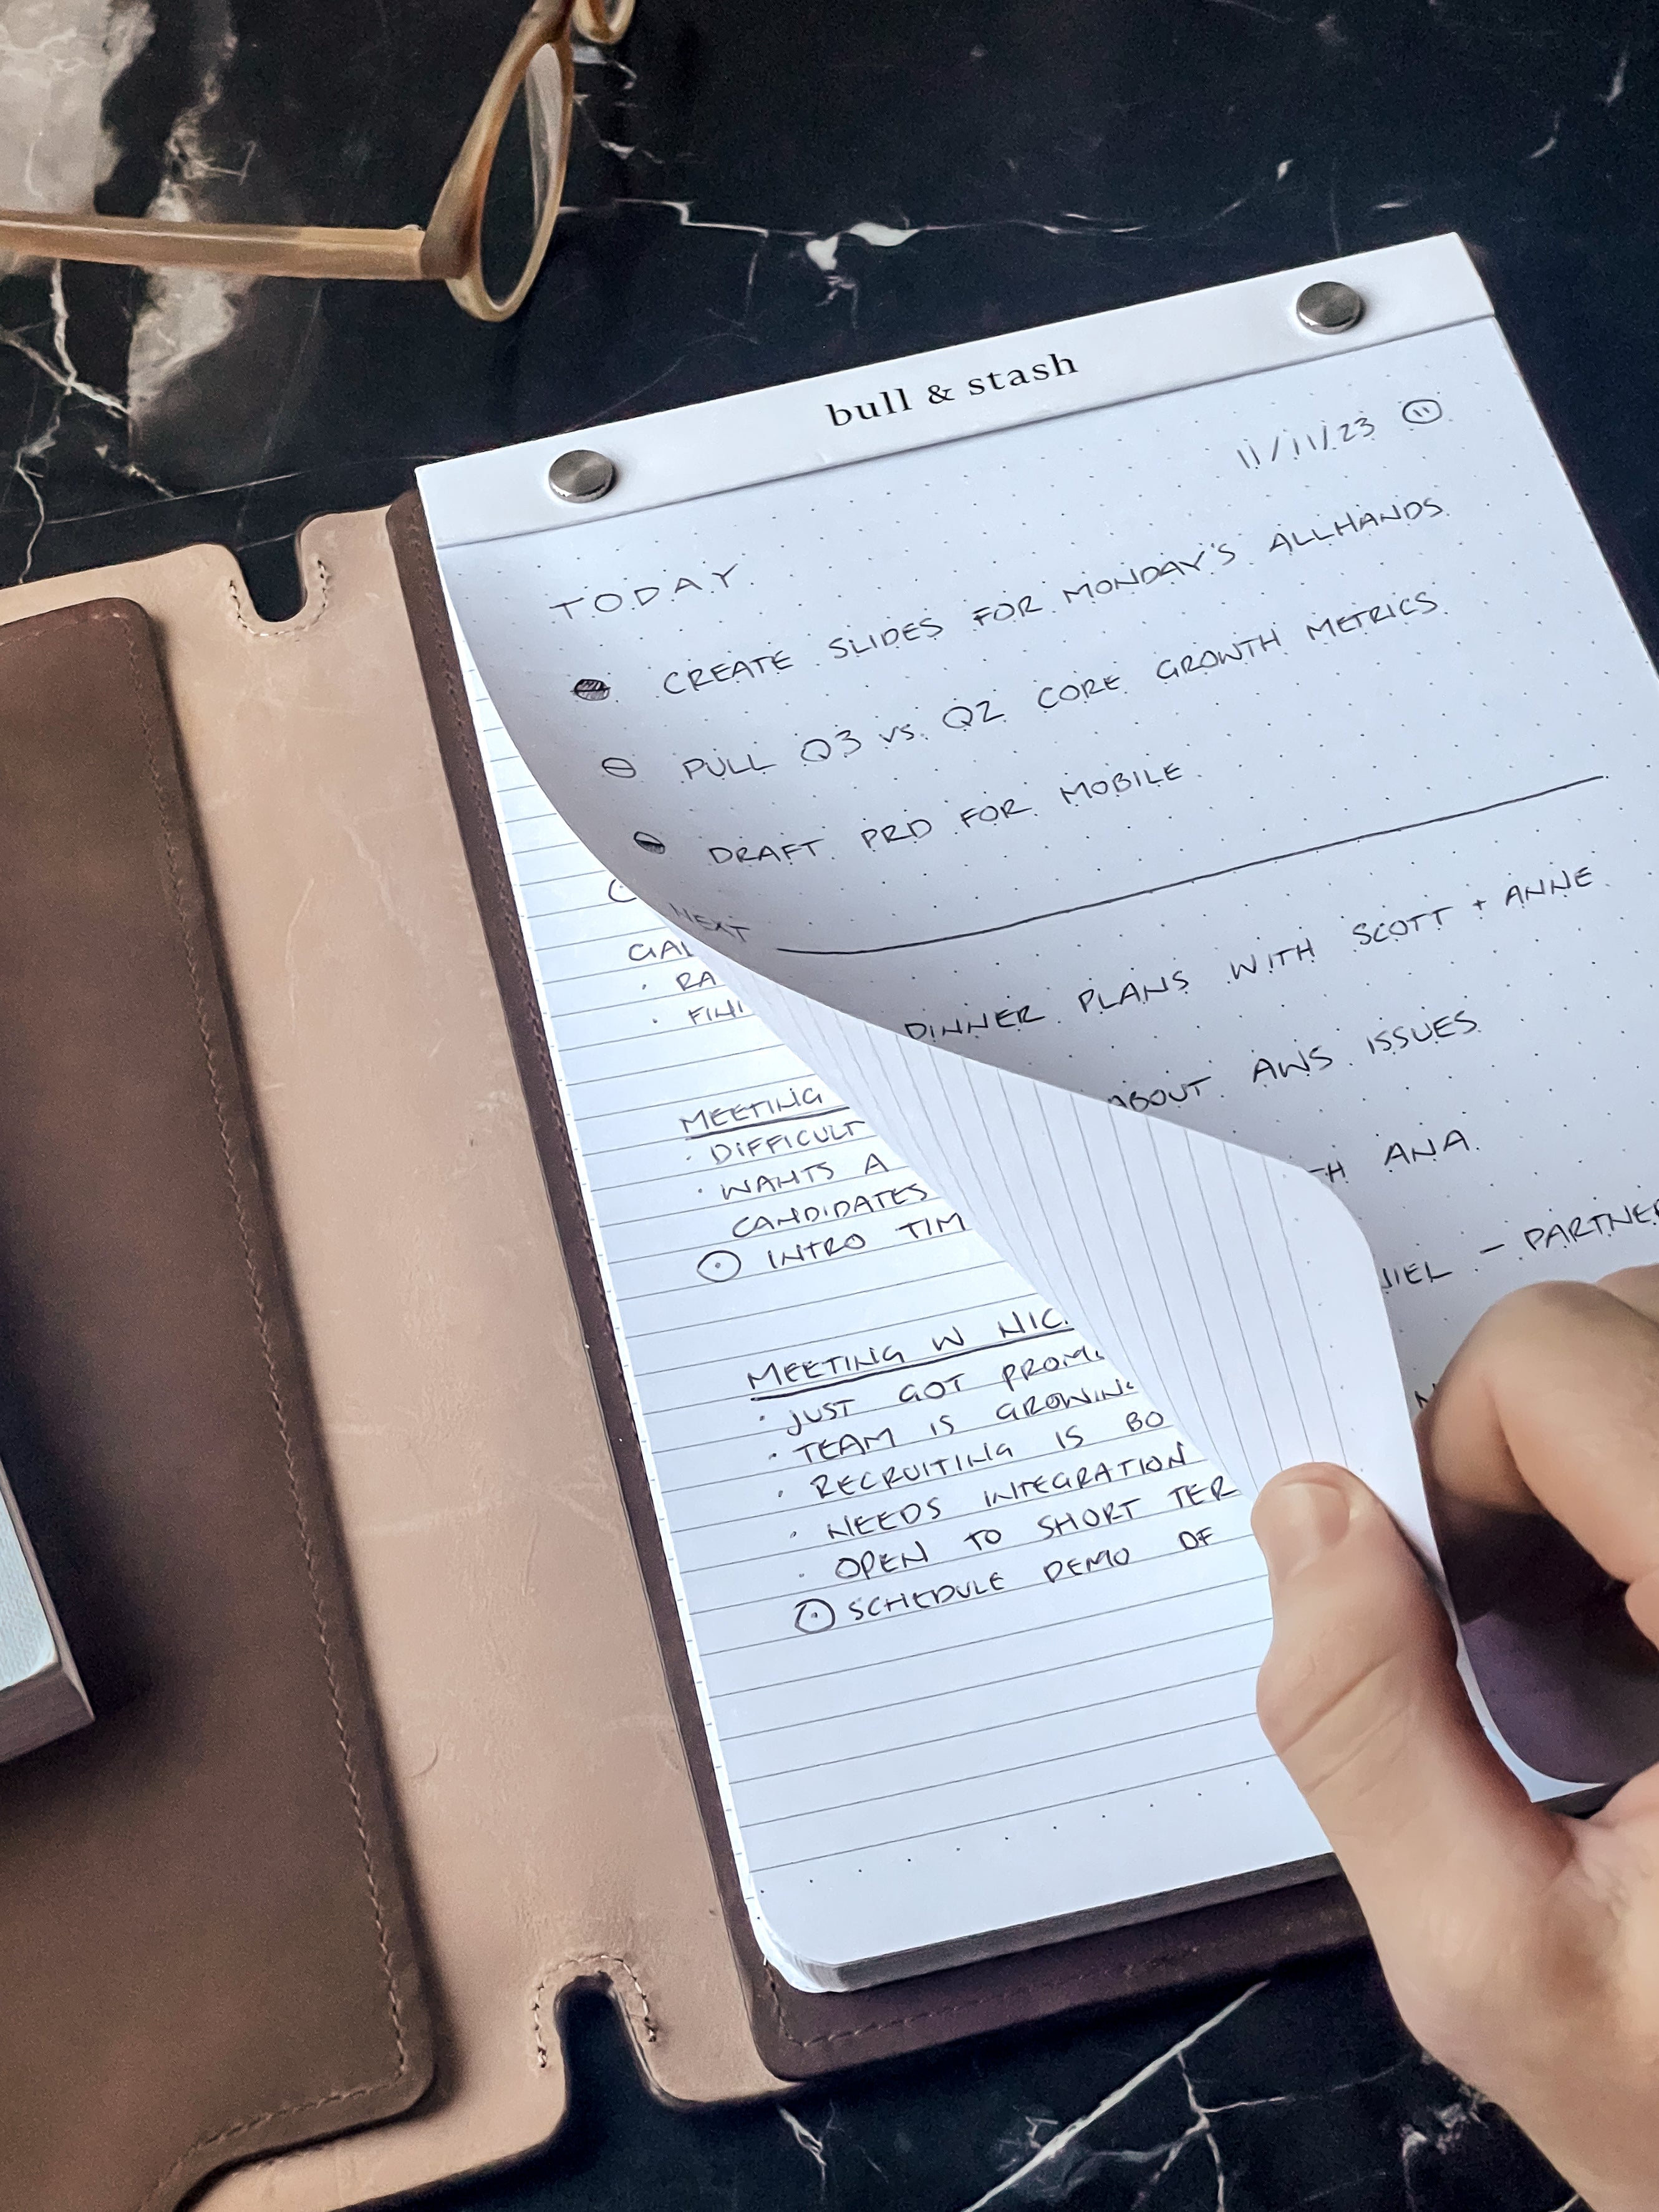 bull & stash
11/11/23 11
TODAY
CREATE SLIDES FOR MONDAY'S ALLHANDS
PULL Q3 vs. Q2 CORE GROWTH METRICS
DRAFT PRD FOR MOBILE
NEXT
DINNER PLANS WITH SCOTT + ANNE
ABOUT AWS ISSUES
ANA
- PARTNER
MEETING
· DIFFICULT
· WANTS A
CANDIDATES
INTRO
MEETING W
· JUST GOT
· TEAM IS GROWING
· RECRUITING IS
· NEEDS INTEGRATION
· OPEN TO SHORT
SCHEDULE DEMO OF